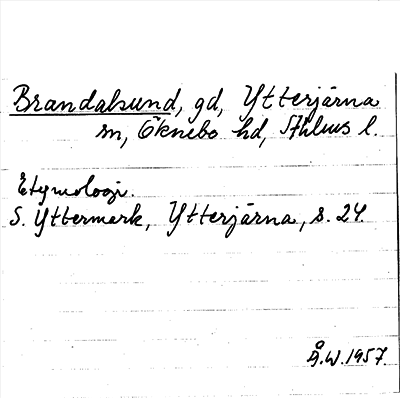 Brandalsund, gd, Ytterjärna
sn, Öknebo hd, Sthlms l.
Etymologi.
S. Yttermark, Ytterjärna, s. 24.
Å.W. 1957.